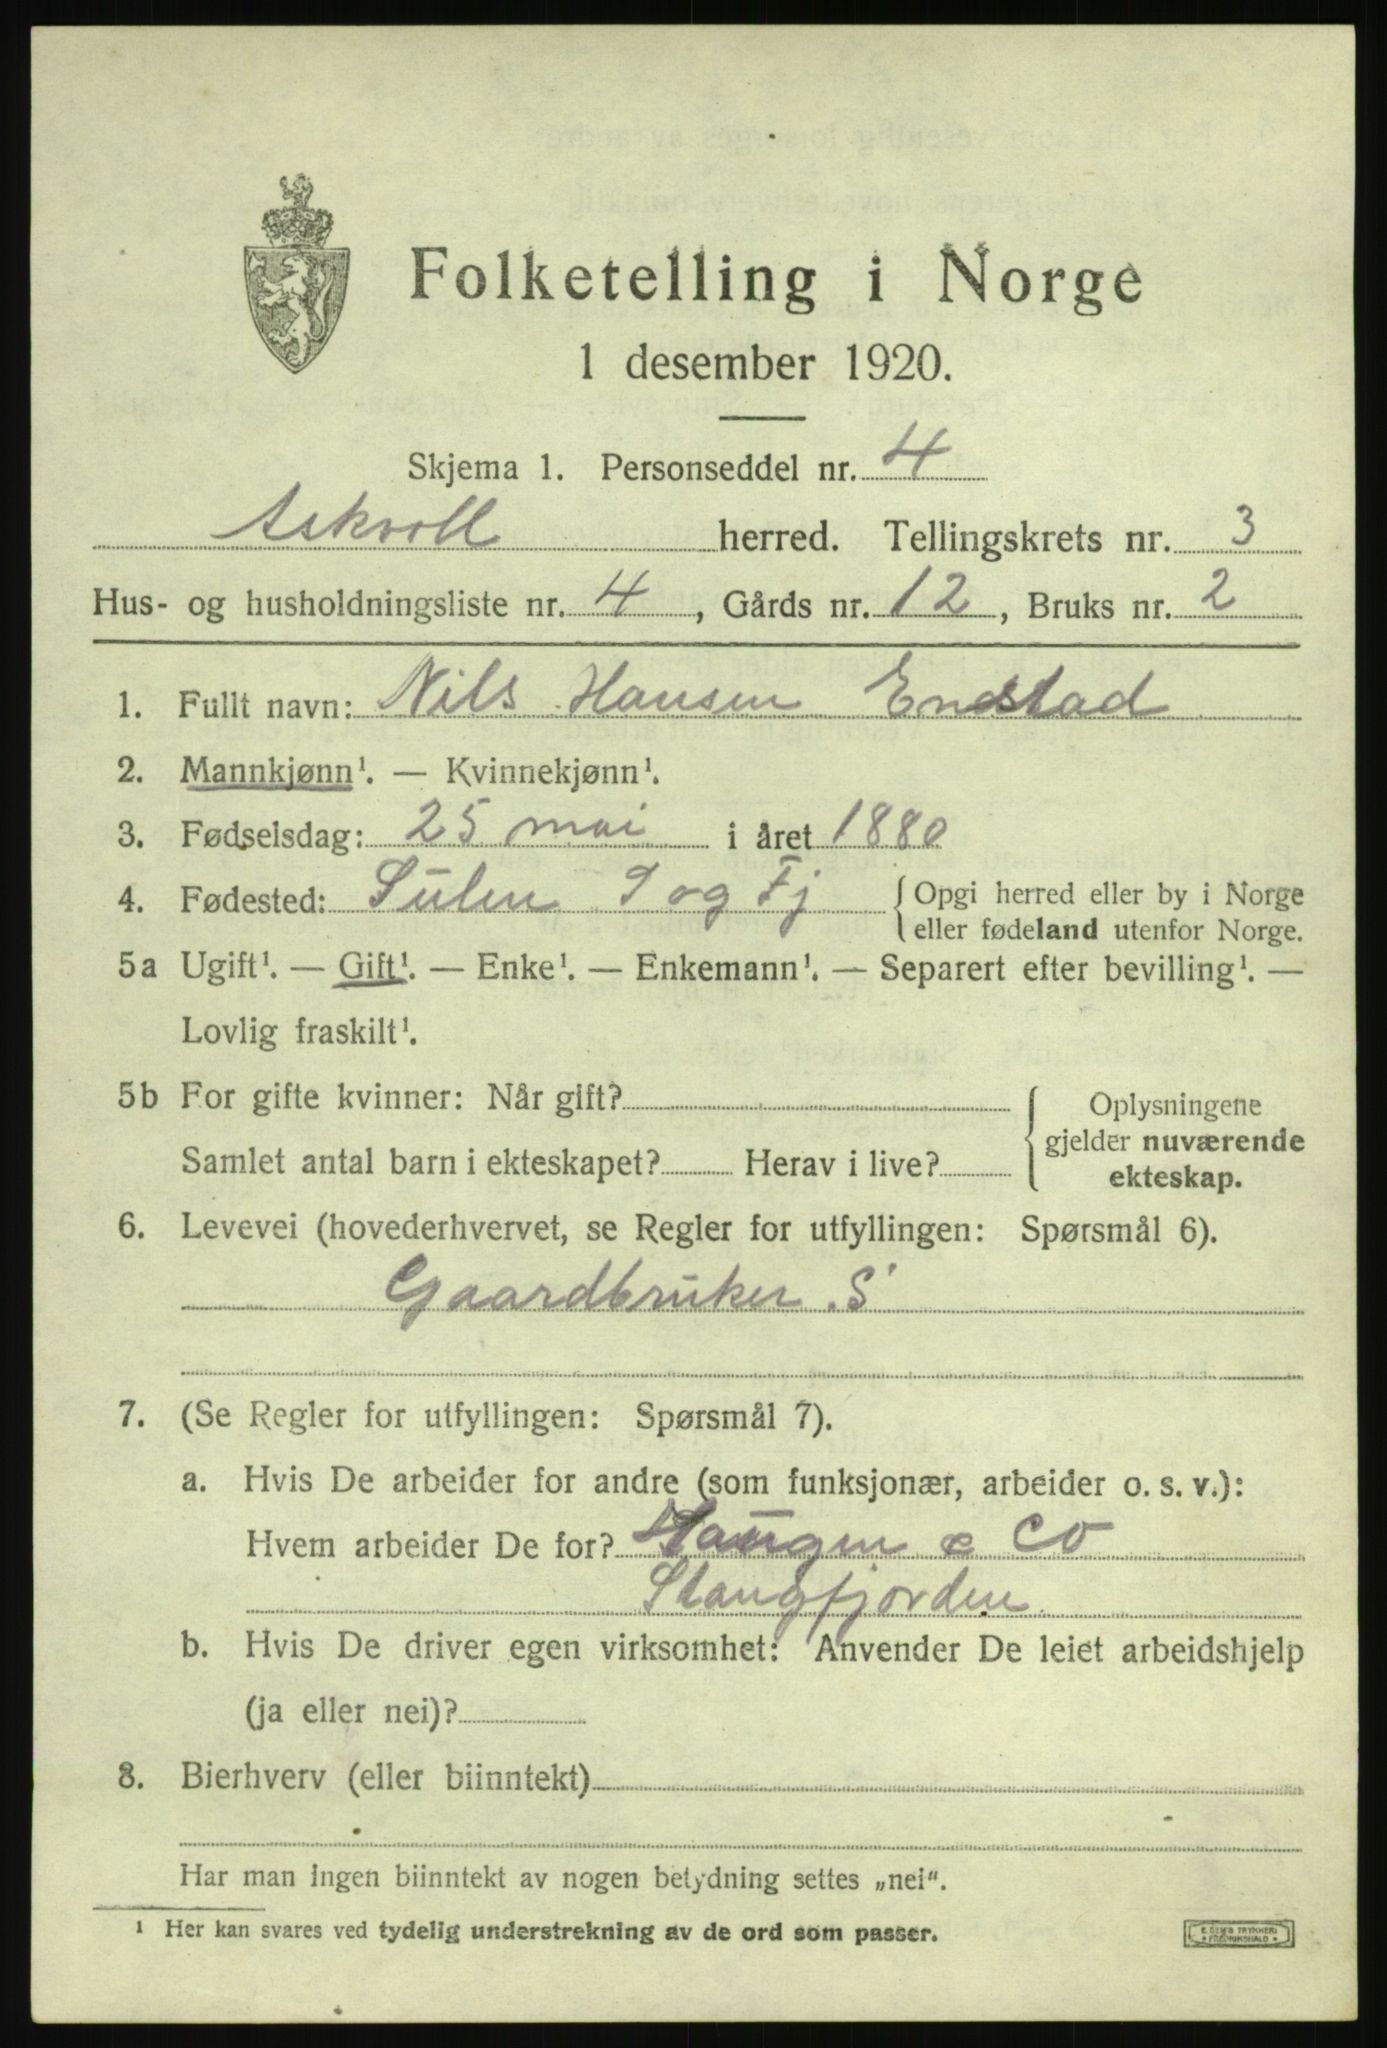 Folketelling i Norge
1 desember 1920.
Skjema 1. Personseddel nr. 4
Askvoll herred. Tellingskrets nr. 3
Hus- og husholdningsliste nr. 4, Gårds nr. 12, Bruks nr. 2
1. Fullt navn: Nils Hansen Endstad
2. Mannkjønn¹. — Kvinnekjønn¹.
3. Fødselsdag: 25 mai i året 1880
4. Fødested: Sulen S og Fj { Opgi herred eller by i Norge
eller fødeland utenfor Norge.
5a Ugift¹. — Gift¹. — Enke¹. — Enkemann¹. — Separert efter bevilling¹. —
Lovlig fraskilt¹.
5b For gifte kvinner: Når gift?
Samlet antal barn i ekteskapet? Herav i live?
{ Oplysningene
gjelder nuværende
ekteskap.
6. Levevei (hovederhvervet, se Regler for utfyllingen: Spørsmål 6).
Gaardbruker S
7. (Se Regler for utfyllingen: Spørsmål 7).
a. Hvis De arbeider for andre (som funksjonær, arbeider o. s. v.):
Hvem arbeider De for? Haugen & CO
Stangfjorden
b. Hvis De driver egen virksomhet: Anvender De leiet arbeidshjelp
(ja eller nei)?
8. Bierhverv (eller biinntekt)
Har man ingen biinntekt av nogen betydning settes „nei“.
¹ Her kan svares ved tydelig understrekning av de ord som passer.
E. SEM'S TRYKKERI
FREDRIKSHALD